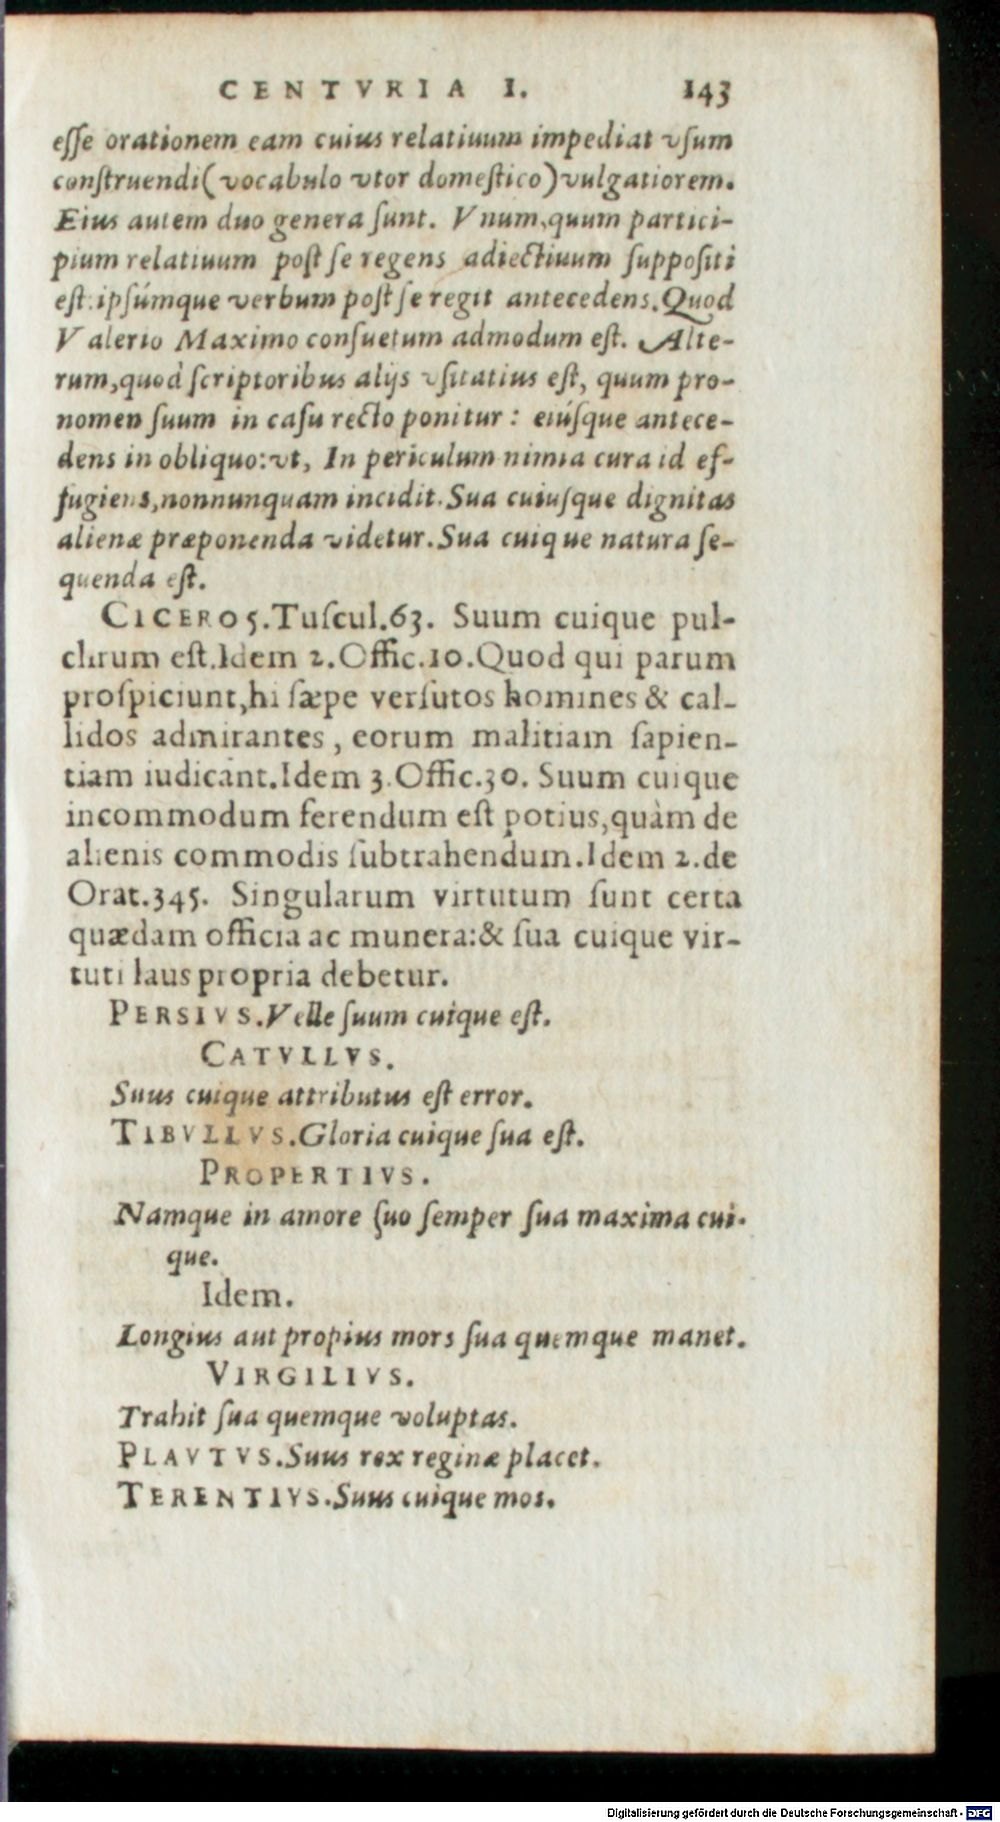 CENTVRIA I. 143
eſſe orationem eam cuius relatiuum impediat vſum
conſtruendi (vocabulo vtor domeſtico) vulgatiorem.
Eius autem duo genera ſunt. Vnum, quum partici-
pium relatiuum poſt ſe regens adiectiuum ſuppoſiti
eſt: ipſúmque verbum poſt ſe regit antecedens. Quod
Valerio Maximo conſuetum admodum eſt. Alte-
rum, quod ſcriptoribus alijs vſitatius eſt, quum pro-
nomen ſuum in caſu recto ponitur: eiúſque antece-
dens in obliquo: vt, In periculum nimia cura id ef-
fugiens, nonnunquam incidit. Sua cuiuſque dignitas
alienæ præponenda videtur. Sua cuique natura ſe-
quenda eſt.
CICERO 5. Tuſcul. 63. Suum cuique pul-
chrum eſt. Idem 2. Offic. 10. Quod qui parum
proſpiciunt, hi ſæpe verſutos homines & cal-
lidos admirantes, eorum malitiam ſapien-
tiam iudicant. Idem 3. Offic. 30. Suum cuique
incommodum ferendum eſt potius, quàm de
alienis commodis ſubtrahendum. Idem 2. de
Orat. 345. Singularum virtutum ſunt certa
quædam officia ac munera: & ſua cuique vir-
tuti laus propria debetur.
PERSIVS. Velle ſuum cuique eſt.
CATVLLVS.
Suus cuique attributus eſt error.
TIBVLLVS. Gloria cuique ſua eſt.
PROPERTIVS.
Namque in amore ſuo ſemper ſua maxima cui-
que.
Idem.
Longius aut propius mors ſua quemque manet.
VIRGILIVS.
Trahit ſua quemque voluptas.
PLAVTVS. Suus rex reginæ placet.
TERENTIVS. Suus cuique mos.
Digitalisierung gefördert durch die Deutsche Forschungsgemeinschaft - DFG